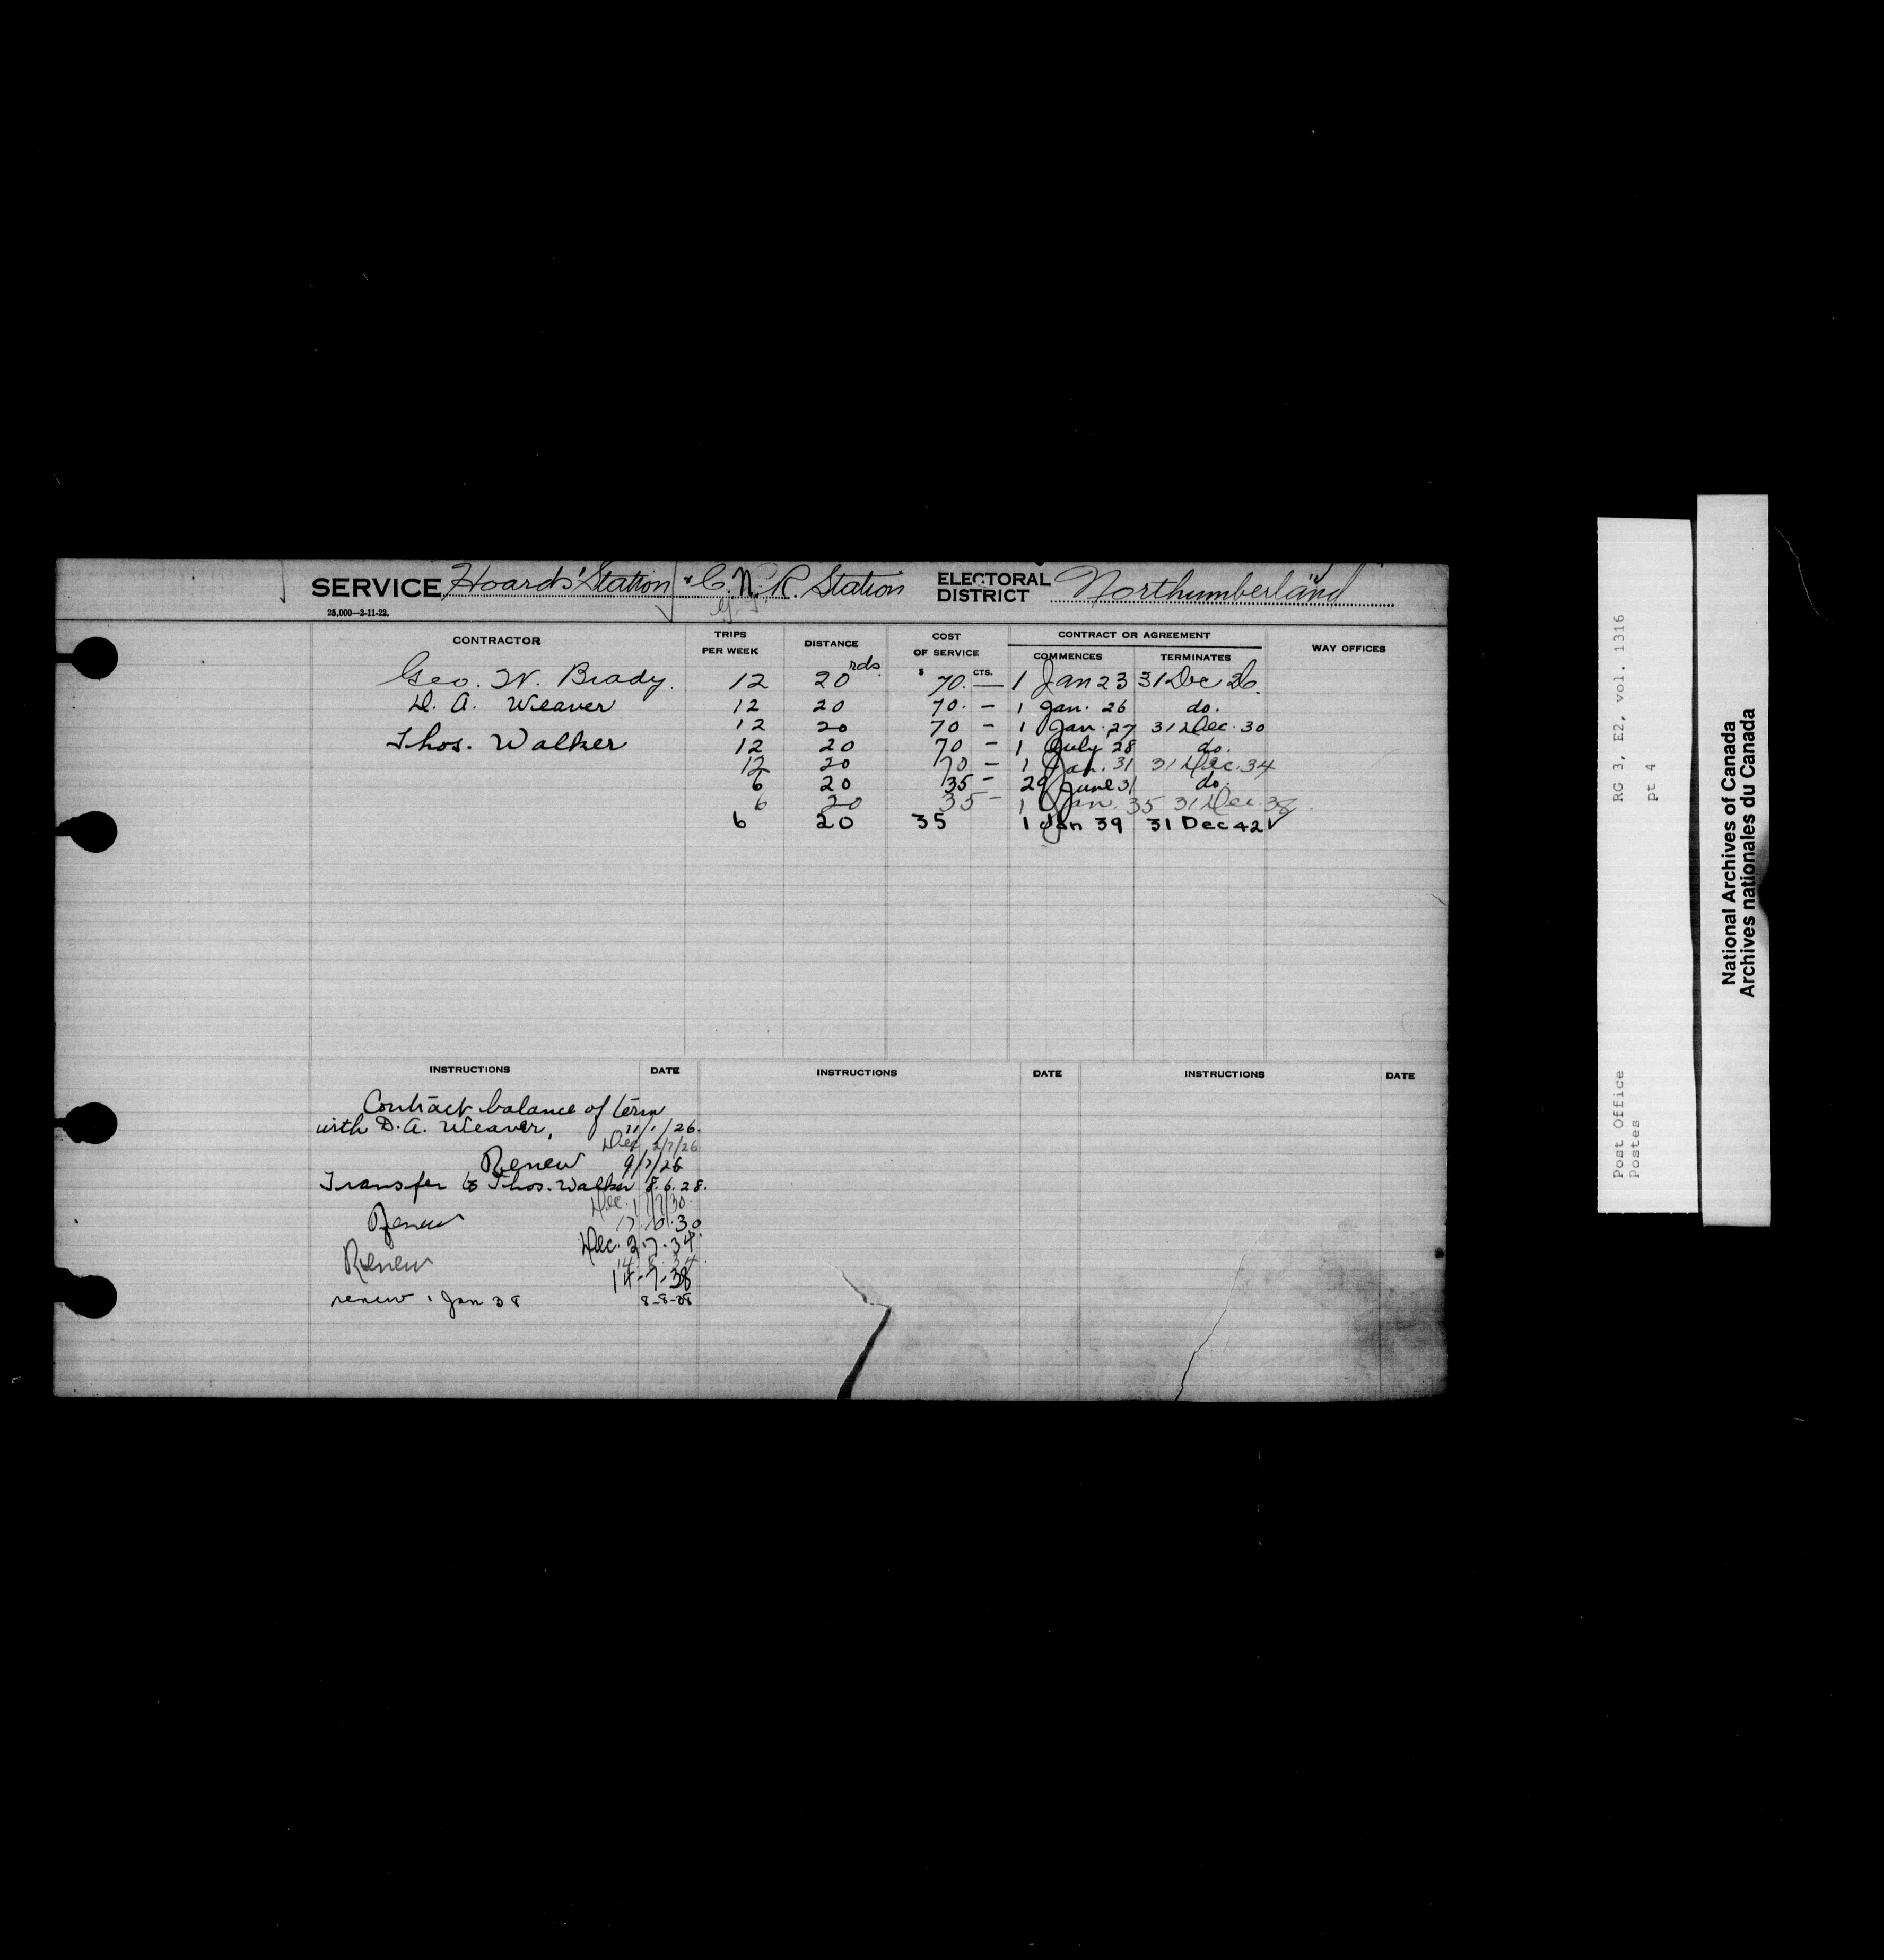 SERVICE Hoards' Station & C.N.R. Station ELECTORAL DISTRICT Northumberland
G.T.
25,000—2-11-22.
CONTRACTOR TRIPS PER WEEK DISTANCE COST OF SERVICE CONTRACT OR AGREEMENT WAY OFFICES
COMMENCES TERMINATES
$ CTS.
Geo. W. Brady. 12 20 rds. 70. — 1 Jan 23 31 Dec 26.
D. A. Weaver 12 20 70. — 1 Jan. 26 do.
12 20 70 — 1 Jan. 27 31 Dec. 30
Thos. Walker 12 20 70 — 1 July 28 do.
12 20 70 — 1 Jan. 31 31 Dec. 34
6 20 35 — 29 June 31 do.
6 20 35 — 1 Jan. 35 31 Dec. 38.
6 20 35 1 Jan 39 31 Dec 42 ✓
INSTRUCTIONS DATE INSTRUCTIONS DATE INSTRUCTIONS DATE
Contract balance of term
with D. A. Weaver, 11/1/26.
Dec 2/7/26
Renew 9/7/26
Transfer to Thos. Walker 8.6.28.
Dec. 17/7/30.
Renew 17.10.30
Dec. 2.7.34.
Renew 14.8.34.
14-7-38
renew 1 Jan 38 8-8-38
Post Office RG 3, E2, vol. 1316
Postes pt 4
National Archives of Canada
Archives nationales du Canada